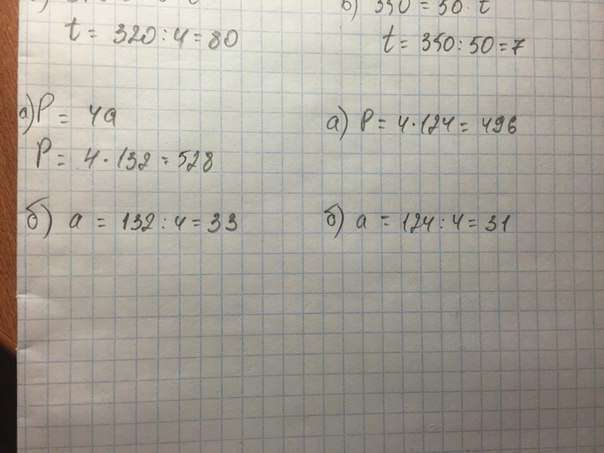 б) 350 = 50 · t
t = 320 : 4 = 80
t = 350 : 50 = 7
а) P = 4a
P = 4 · 132 = 528
б) a = 132 : 4 = 33
а) P = 4 · 124 = 496
б) a = 124 : 4 = 31